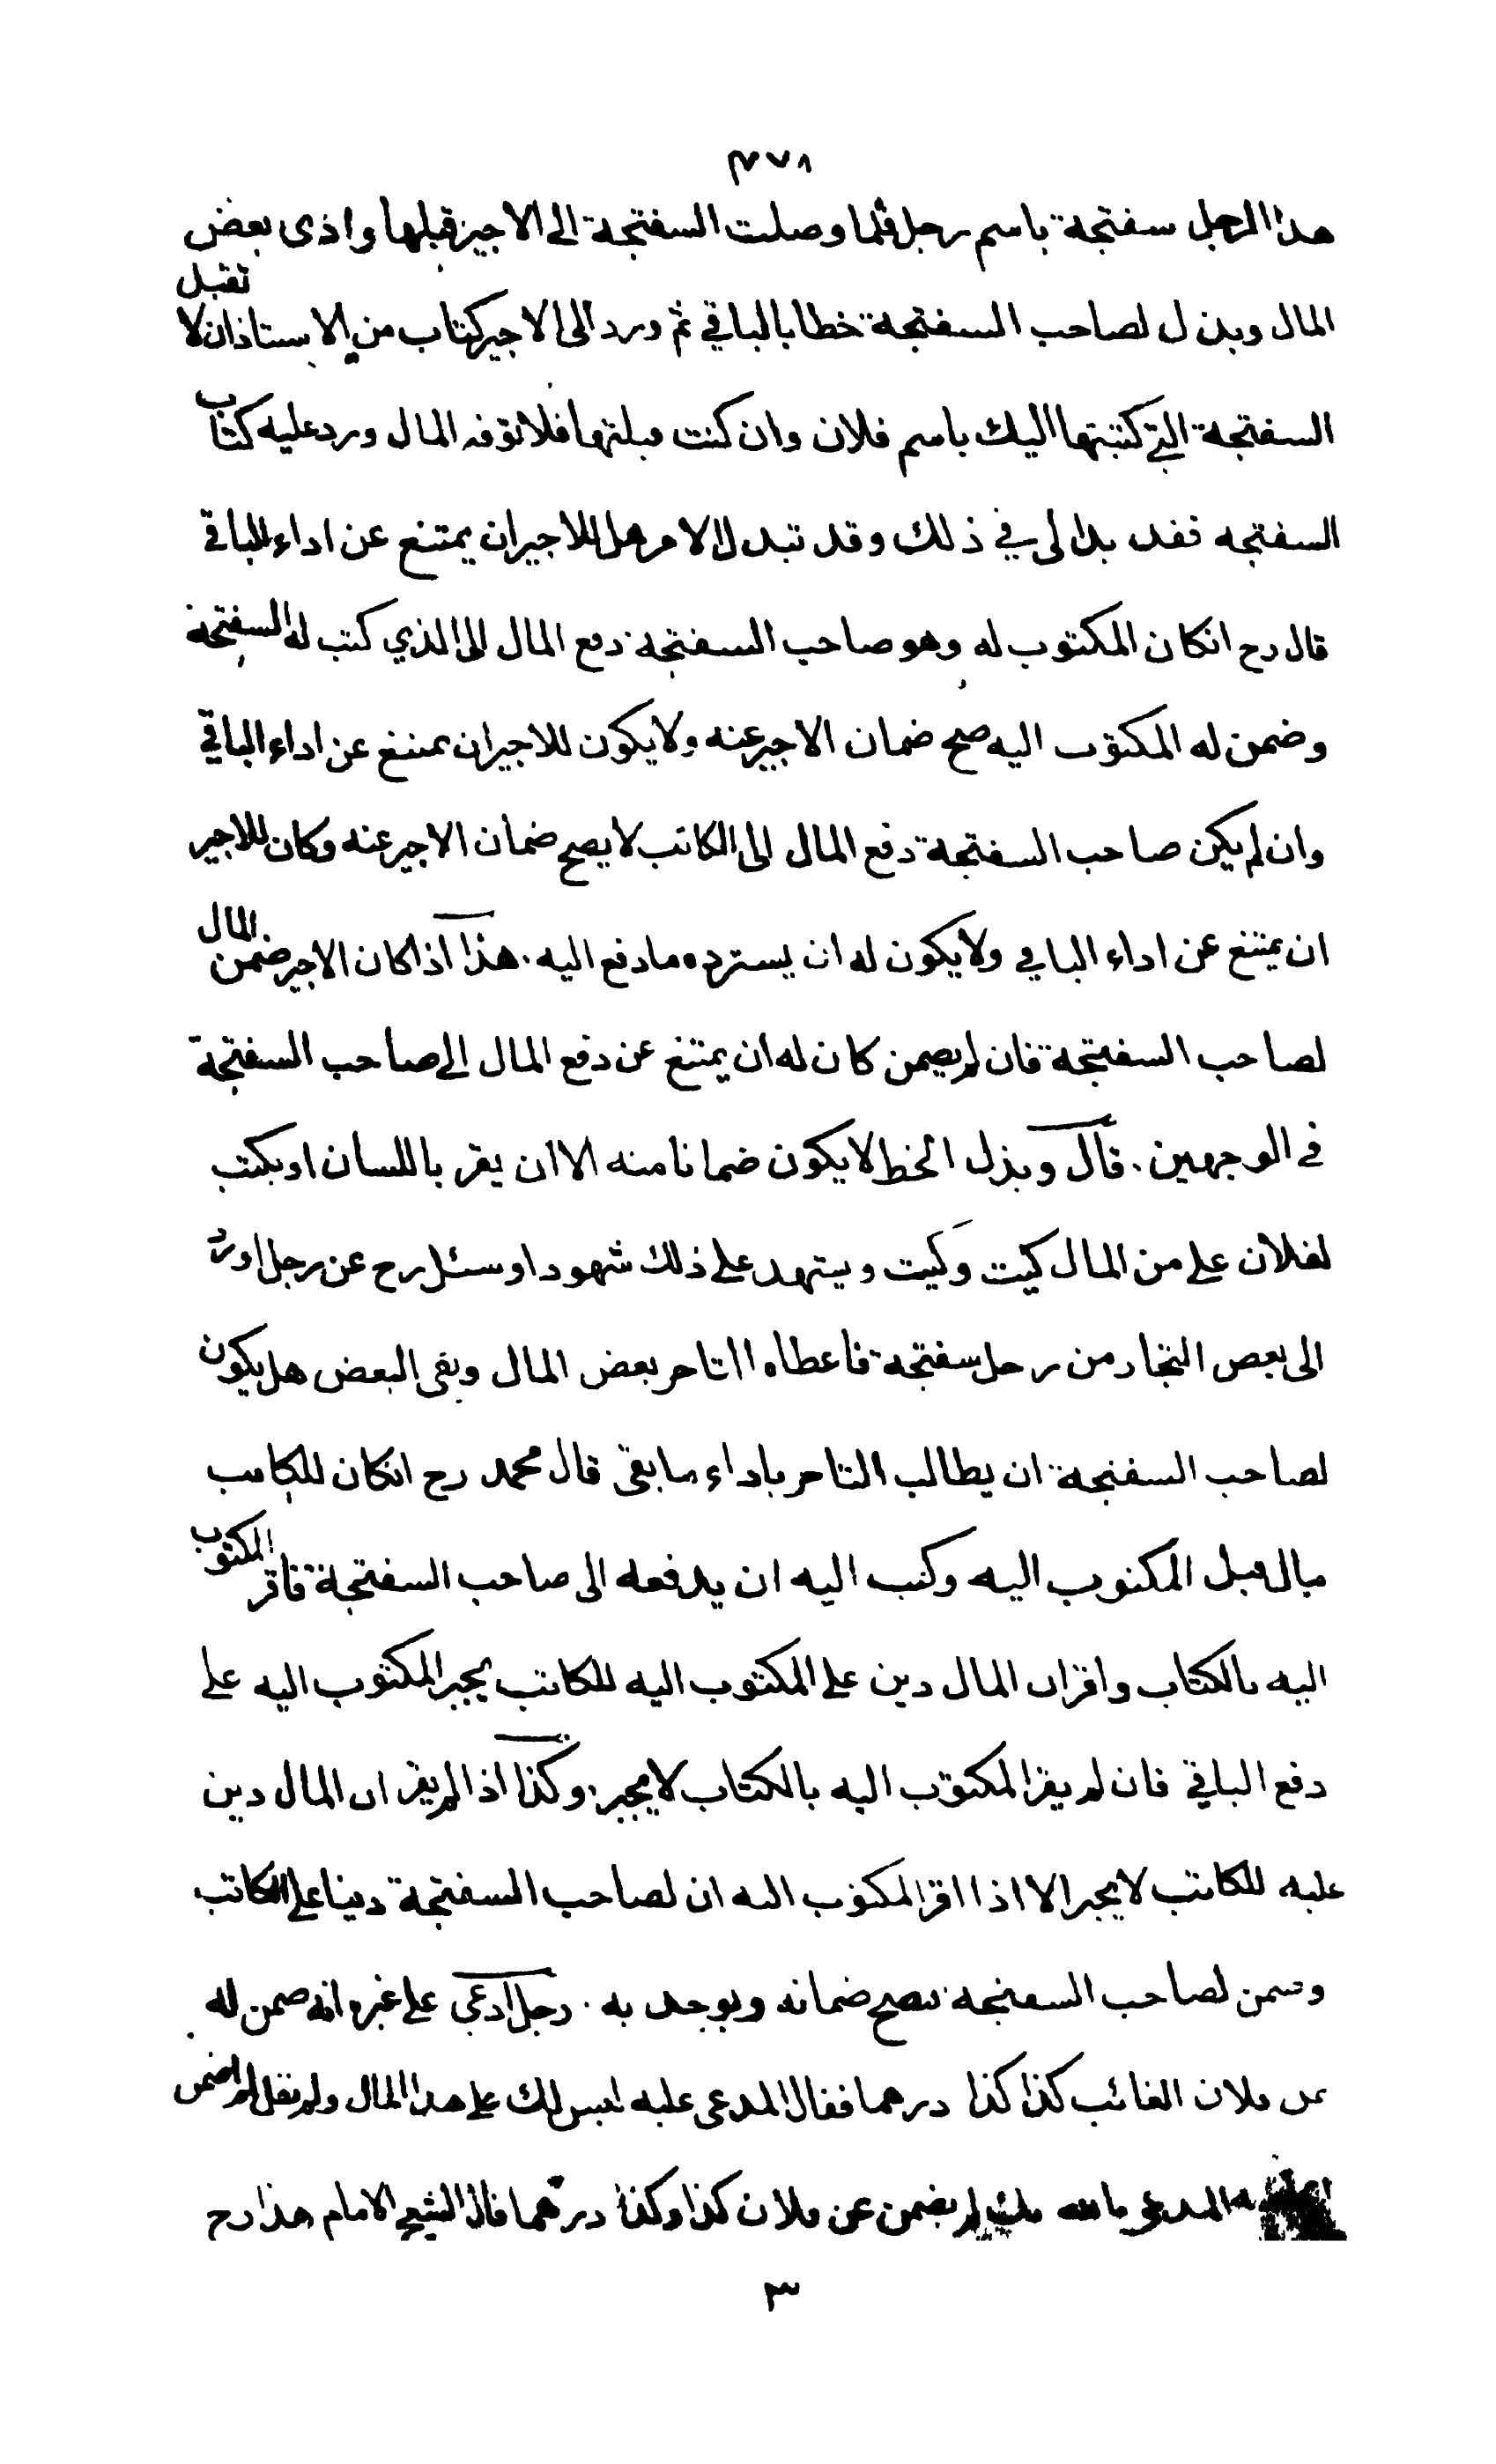 ٣٧٨
هذا الرجل سفتجة باسم رجل فلما وصلت السفتجة الى الاجير قبلها واذى بعض
المال وبذل لصاحب السفتجة خطا بالباقي ثم ورد الى الاجير كتاب من الاستاذ ان لا تقبل
السفتجة التي كتبتها اليك باسم فلان وان كنت قبلتها فلا توفه المال ورد عليه كتاب
السفتجه فقد بدا لى في ذلك وقد تبدل الامر هل للاجير ان يمتنع عن اداء الباقي
قال رح انكان المكتوب له وهو صاحب السفتجة دفع المال الى الذي كتب له السفتجة
وضمن له المكتوب اليه صح ضمان الاجير عنه ولا يكون للاجير ان يمتنع عن اداء الباقي
وان لم يكن صاحب السفتجة دفع المال الى الكاتب لا يصح ضمان الاجير عنه وكان للاجير
ان يمتنع عن اداء الباقي ولا يكون له ان يسترد ما دفع اليه . هذا اذا كان الاجير ضمن المال
لصاحب السفتجة فان لم يضمن كان له ان يمتنع عن دفع المال الى صاحب السفتجة
في الوجهين . قال وبذل الخط لا يكون ضمانا منه الا ان يقر باللسان او يكتب
لفلان على من المال كيت وكيت ويشهد على ذلك شهودا وسئل رح عن رجل اورد
الى بعض التجار من رجل سفتجة فاعطاه التاجر بعض المال وبقى البعض هل يكون
لصاحب السفتجة ان يطالب التاجر باداء ما بقى قال محمد رح انكان للكاتب
مال قبل المكتوب اليه وكتب اليه ان يدفعه الى صاحب السفتجة فاقر المكتوب
اليه بالكتاب واقر ان المال دين على المكتوب اليه للكاتب يجبر المكتوب اليه على
دفع الباقي فان لم يقر المكتوب اليه بالكتاب لا يجبر . وكذا اذا لم يقر ان المال دين
عليه للكاتب لا يجبر الا اذا اقر المكتوب اليه ان لصاحب السفتجة دينا على الكاتب
وضمن لصاحب السفتجة فيصح ضمانه ويوخذ به . رجل ادعى على غيره انه ضمن له
عن فلان الغائب كذا كذا درهما فقال المدعى عليه ليس لك على هذا المال ولم تقل لم اضمن
المدعى بالله لم يضمن عن فلان كذا وكذا درهما قال الشيخ الامام هذا رح
٣